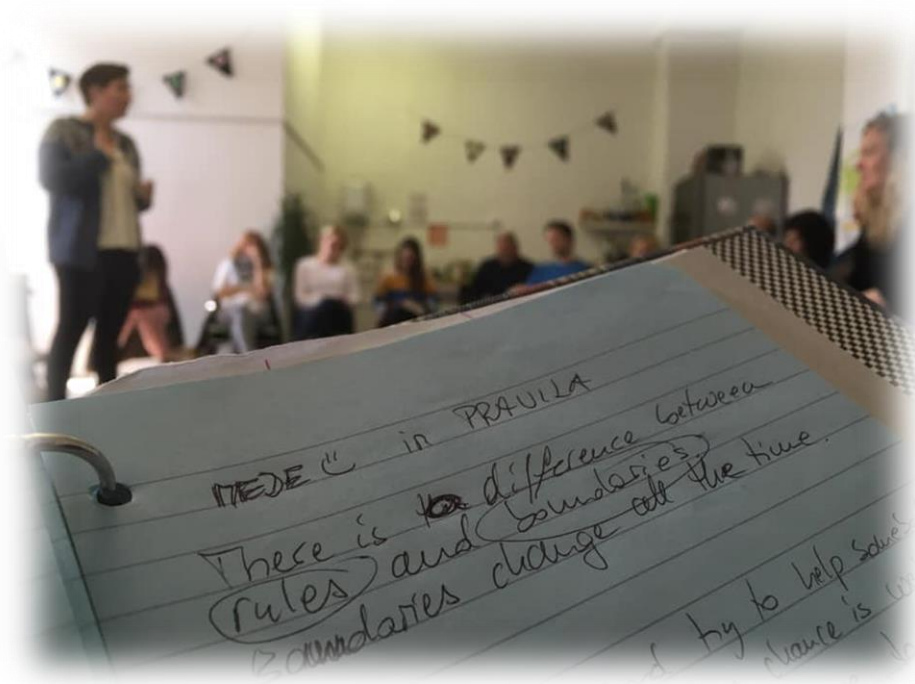 MEDE in PRAVILA
There is difference between
rules and boundaries.
Boundaries change all the time.
try to help
chance is